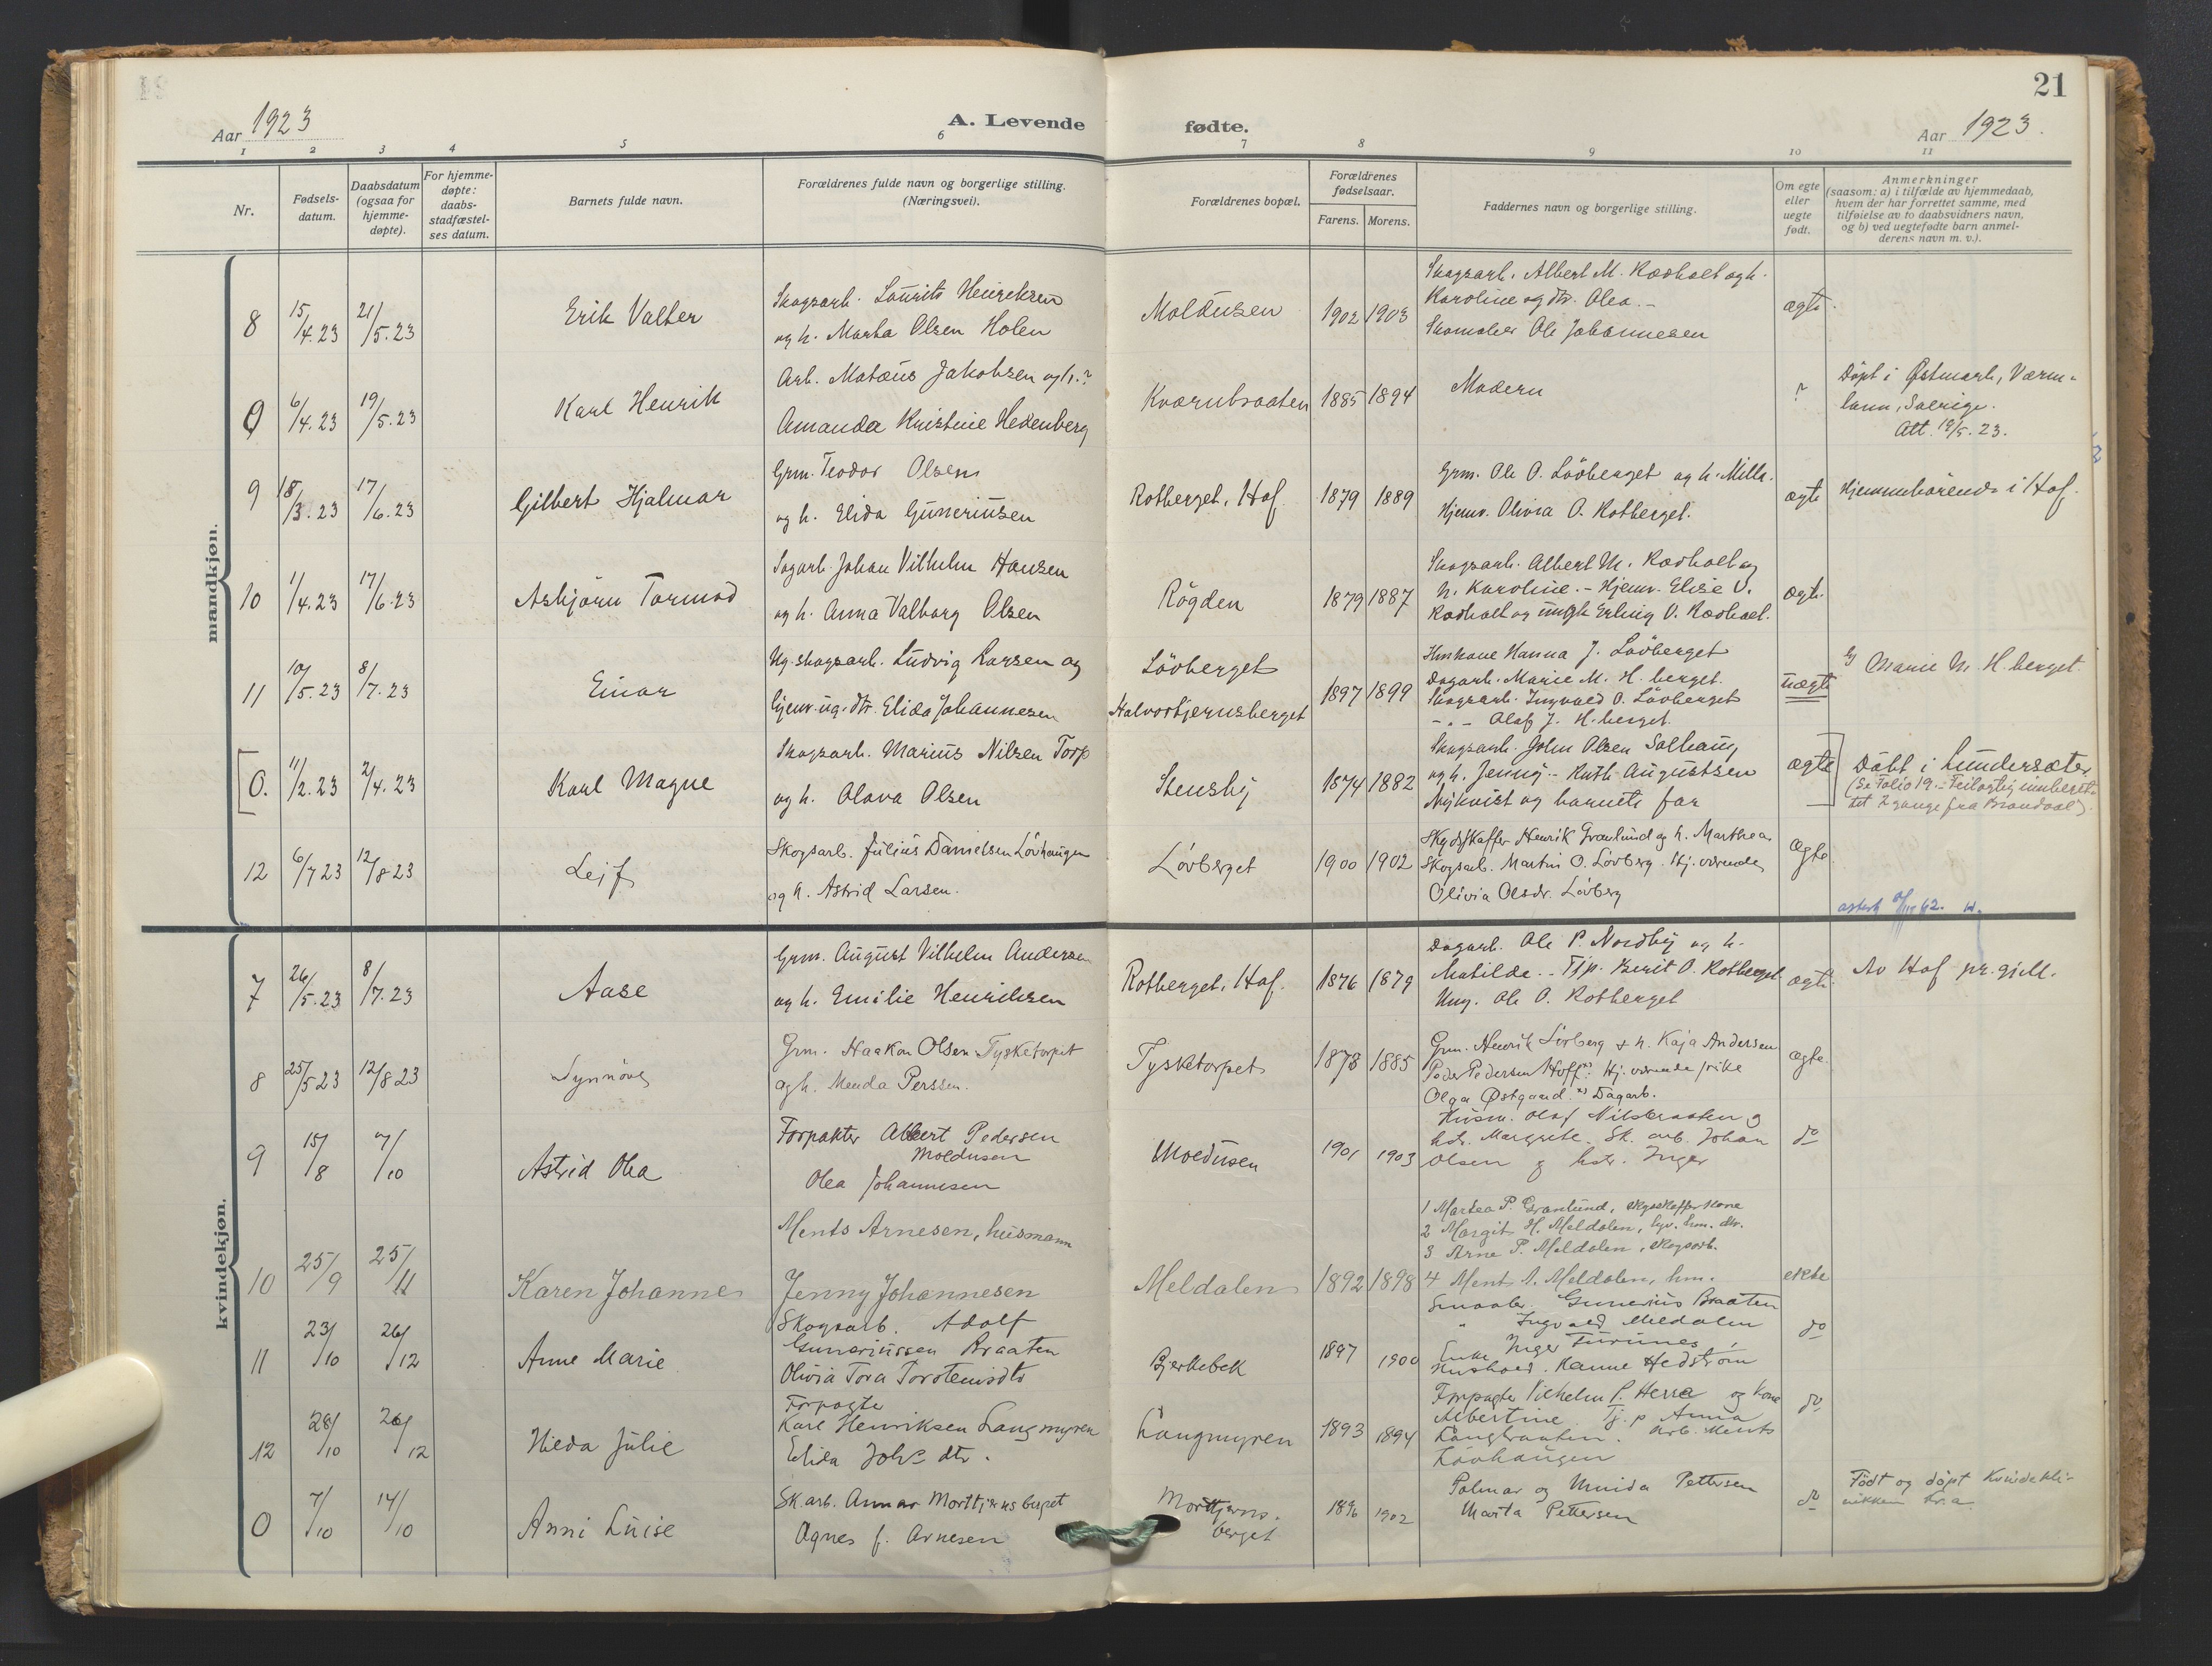 21
Aar 1923
A. Levende
fødte.
Aar 1923.
1 2 3 4 5 6 7 8 9 10 11
Nr.
Fødsels-
datum.
Daabsdatum
(ogsaa for
hjemme-
døpte).
For hjemme-
døpte:
daabs-
stadfæstel-
ses datum.
Barnets fulde navn.
Forældrenes fulde navn og borgerlige stilling.
(Næringsvei).
Forældrenes bopæl.
Forældrenes
fødselsaar.
Farens. Morens.
Faddernes navn og borgerlige stilling.
Om egte
eller
uegte
født.
Anmerkninger
(saasom: a) i tilfælde av hjemmedaab,
hvem der har forrettet samme, med
tilføielse av to daabsvidners navn,
og b) ved uegtefødte barn anmel-
derens navn m. v.).
mandkjøn.
8 15/4.23 21/5.23 Erik Valter
Skogsarb. Laurits Henriksen
og h. Marta Olsen Holen
Moldusen 1902 1903
Skogsarb. Albert M. Rødholt og h.
Karoline og dtr. Olea. -
Skomaker Ole Johannesen
ægte.
0 6/4.23 19/5.23 Karl Henrik
Arb. Matæus Jakobsen og h.?
Amanda Kristine Hedenberg
Kværnbraaten 1885 1894
Modern
?
Döpt i Østmark, Værm-
lann, Sverige.
Att. 19/5.23.
9 18/3.23 17/6.23 Gilbert Hjalmar
Grm. Teodor Olsen
og h. Elida Guneriusen
Rotberget, Hof 1879 1889
Grm. Ole O. Lövberget og h. Milla.
Hjemv. Olivia O. Rotberget.
ægte
Hjemmehörende i Hof.
10 1/4.23 17/6.23 Asbjörn Tormod
Sagarb. Johan Vilhelm Hansen
og h. Anna Valborg Olsen
Rögden 1879 1887
Skogsarb. Albert M. Rødholt og
h. Karoline. - Hjemv. Elise V.
Rødholt og ungk Erling V. Rødholt.
ægte
11 10/5.23 8/7.23 Einar
Ug. skogsarb. Ludvig Larsen og
hjemv. ug. dtr. Elida Johannesen
Lövberget
Halvortjernsberget
1897 1899
Hmkone Hanna J. Lövberget
Dagarb. Marie M. H. berget.
Skogsarb. Ingvald O. Lövberget
- " - Olaf J. H. berget.
uægte
Marie M. H. berget.
[0. 11/2.23 2/4.23 Karl Magne
Skogsarb. Marius Nilsen Torp
og h. Olava Olsen
Stensby 1874 1882
Skogsarb. John Olsen Solhaug
og h. Jenny - Ruth Augustsen
Nykvist og barnets far
ægte]
Döbt i Lundersæter
(Se Folio 19. - Feilagtig innberet-
tet 2 gange fra Brandval).
12 6/7 23 12/8 23 Leif
Skogsarb. Julius Danielsen Lövhaugen
og h. Astrid Larsen.
Lövberget 1900 1902
Skydskaffer Henrik Granlund og h. Marthea
Skogsarb. Martin O. Lövberg. Hj. værende
Olivia Olsdr. Lövberg
Ægte
kvindekjøn.
7 26/5.23 8/7.23 Aase
Grm. August Vilhelm Andersen
og h. Emilie Henriksen
Rotberget, Hof. 1876 1879
Dagarb. Ole P. Nordby og h.
Matilde. - Tjp. Berit O. Rotberget
Ung. Ole O. Rotberget
ægte
Av Hof pr.gjell.
8 25/5 23 12/8 23 Synnöve
Grm. Haakon Olsen Tysketorpet
og h. Menda Perssen.
Tysketorpet 1878 1885
Grm. Henrik Lövberg & h. Kaja Andersen
Peder Pedersen Hoff x) Hj. værende pike
Olga Østgaard. x) Dagarb.
ægte.
9 15/8 7/10 Astrid Olea
Forpakter Albert Pedersen
Moldusen
Olea Johannesen
Moldusen 1901 1903
Husm. Olaf Nilsbraaten og
hstr. Margrete. Sk. arb. Johan
Olsen og hstr. Inger
do
10 25/9 25/11 Karen Johanne
Ments Arnesen, husmann
Jenny Johannesen
Meldalen 1892 1898
1 Martea P. Granlund, skydskafferkone
2 Margit H. Meldalen, hjv. hm. dtr.
3 Arne P. Meldalen, skogsarb.
4 Ments A. Meldalen, hm.
ekte
11 23/10 26/12 Anne Marie
Skogsarb. Adolf
Guneriussen Braaten
Olivia Tora Torsteinsdtr
Bjerkebek 1897 1900
Gunerius Braaten
" Ingvald Meldalen
Enke Inger Turunes,
Hanne Hedström
do
12 28/10 26/12 Hilda Julie
Forpagte
Karl Henriksen Langmyren
Elida Johs dtr.
Langmyren 1893 1894
Forpagter Vilhelm P. Herra og kone
Albertine. Tj. p Anna
Langbraaten. Arb. Ments
Lövhaugen
do
0 7/10 14/10 Anni Luise
Sk. arb. Annar Morttjernsberget
Agnes f. Arnesen
Morttjerns.
berget
1896 1902
Palmar og Unida Pettersen
Marta Pettersen
do
Födt og döpt Kvindekli-
nikken Kr.a